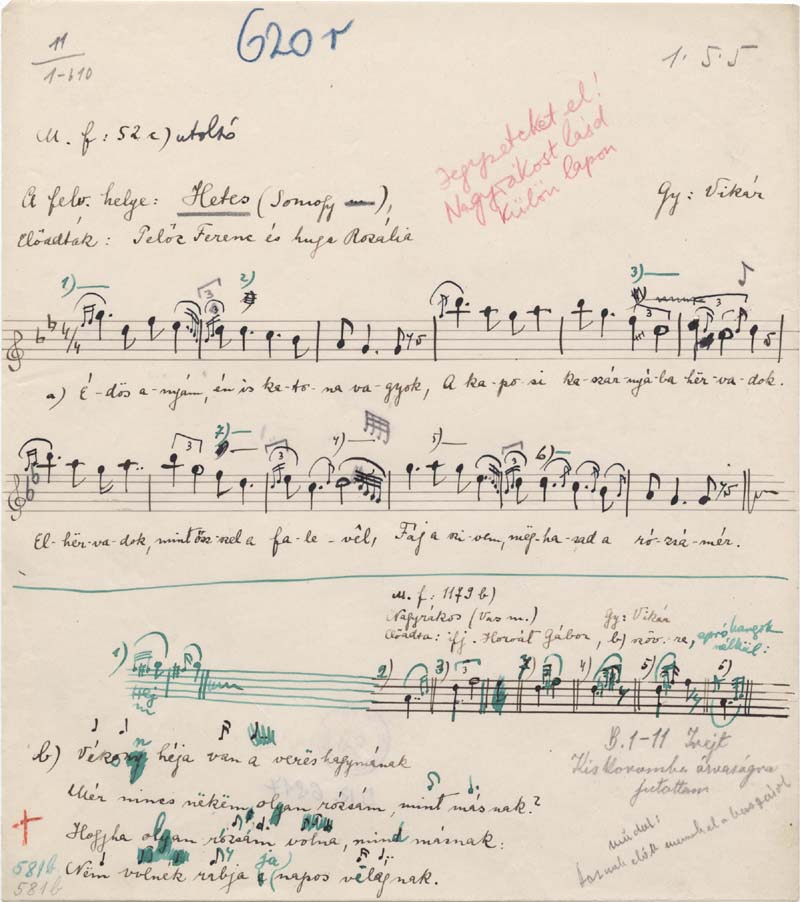 620 r
11
1-610
1. 5. 5
M. f: 52 c) utolsó
Jegyzeteket el!
Nagyrákost lásd
külön lapon
A felv. helye: Hetes (Somogy m),
Gy: Vikár
Előadták: Pelőz Ferenc és huga Rozália
1) 2) 3)
a) É-dös a-nyám, én is ka-to-na va-gyok, A ka-po-si ka-szár-nyá-ba hër-va-dok.
7) 4) 5) 6)
El-hër-va-dok, mint ősz-szel a fa-le-vél, Fáj a szi-vem, mëg-ha-sad a ró-zsá-mér.
M. f: 1179 b)
Nagyrákos (Vas m.) Gy: Vikár
Előadta: ifj. Horvát Gábor, b) szöv.-re, apró hangok
nélkül:
1) 2) 3) 7) 4) 5) 6)
b) Vékony héja van a vereshagymának
Mér nincs nékëm olyan rózsám, mint másnak?
Hogyha olyan rózsám volna, mind másnak:
Nëm volnék rabja a (napos világnak.
ja)
581b
581b
B. 1-11
Kiskoromba árvaságra
jutottam